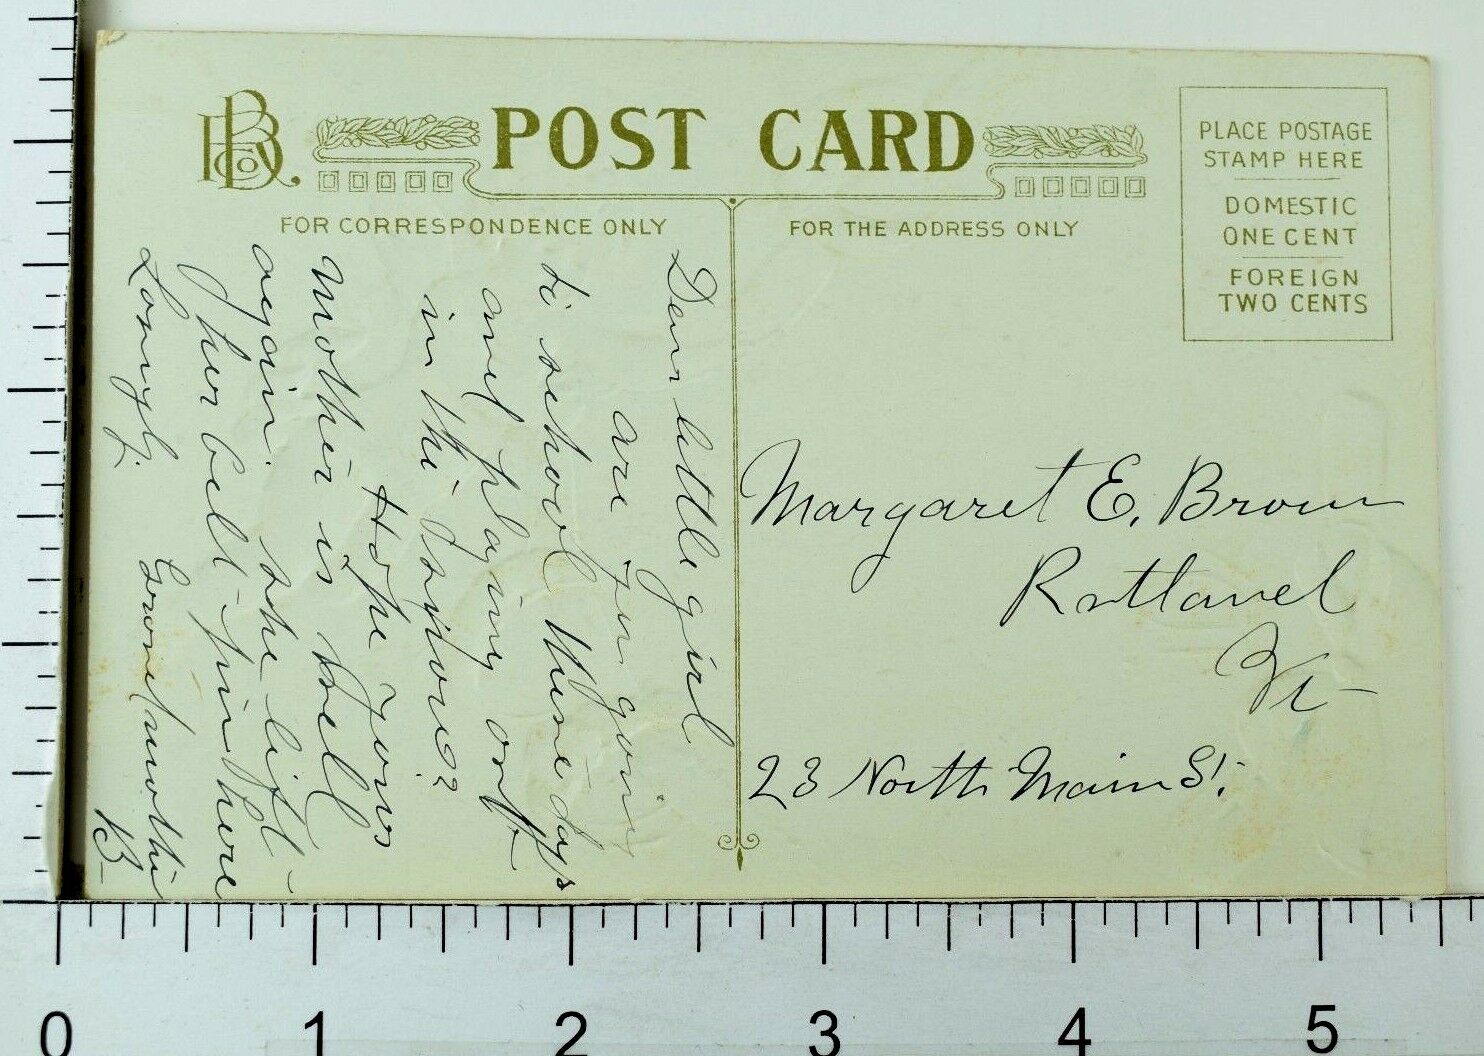 POST CARD
FOR CORRESPONDENCE ONLY
FOR THE ADDRESS ONLY
PLACE POSTAGE
STAMP HERE
DOMESTIC
ONE CENT
FOREIGN
TWO CENTS
Dear little girl
are you going
to school these days
and playing out
in the snow?
Hope your
Mother is well
again. she left
her belt-pin here
Lovingly.
Grandmother
B-
Margaret E. Brown
Rutland
Vt-
23 North Main St.
0 1 2 3 4 5